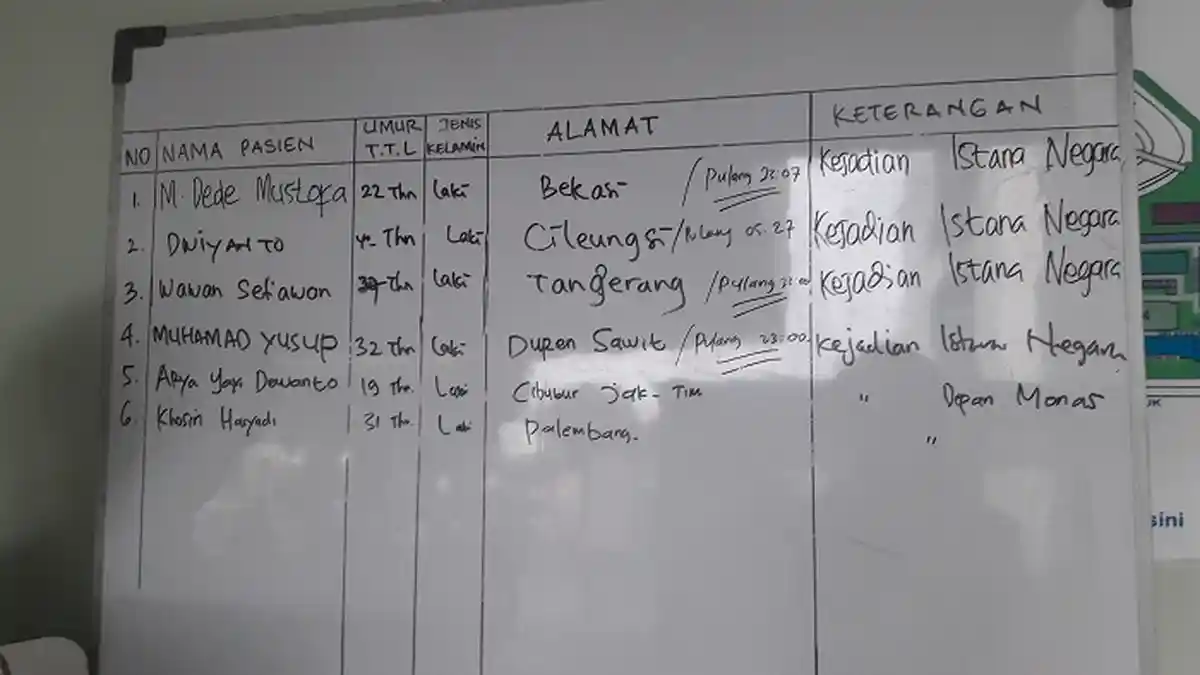 NO NAMA PASIEN UMUR T.T.L JENIS KELAMIN ALAMAT KETERANGAN
1. M. Dede Mustofa 22 Thn Laki Bekasi / Pulang 23:07 Kejadian Istana Negara
2. DWIYANTO Thn Laki Cileungsi / Pulang 05.27 Kejadian Istana Negara
3. Wawan Setiawan Thn Laki Tangerang / Pulang Kejadian Istana Negara
4. MUHAMAD YUSUP 32 Thn Laki Duren Sawit / Pulang 23:00 Kejadian Istana Negara
5. Arya 19 Thn. Laki Cibubur Jak-Tim " Depan Monas
6. Khosin Haryadi 31 Thn. Laki Palembang. "
sini